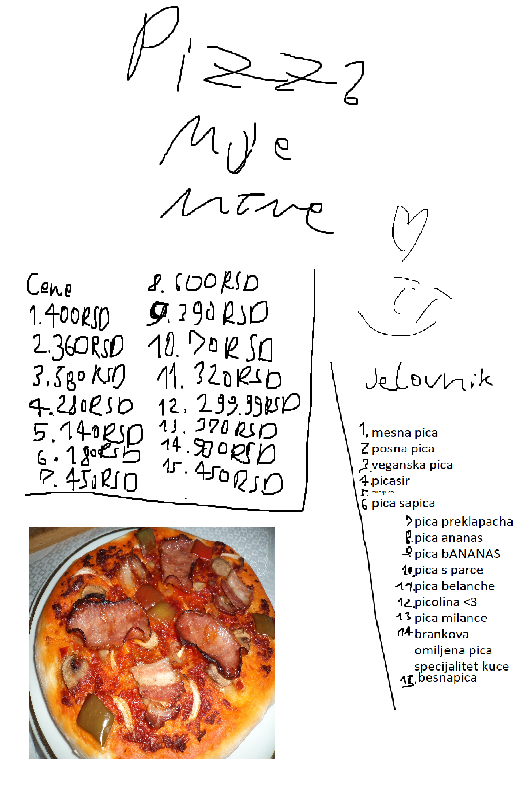 Pizza
Moje
Cene
1. 400RSD
2. 360RSD
3. 580RSD
4. 280RSD
5. 140RSD
6. 180RSD
7. 450RSD
8. 600RSD
9. 390RSD
10. 70RSD
11. 320RSD
12. 299.99RSD
13. 370RSD
14. 980RSD
15. 450RSD
Jelovnik
1. mesna pica
2 posna pica
3 veganska pica
4 picasir
5
6 pica sapica
7 pica preklapacha
8 pica ananas
9 pica bANANAS
10 pica s parce
11. pica belanche
12. picolina <3
13 pica milance
14 brankova
omiljena pica
specijalitet kuce
15. besnapica